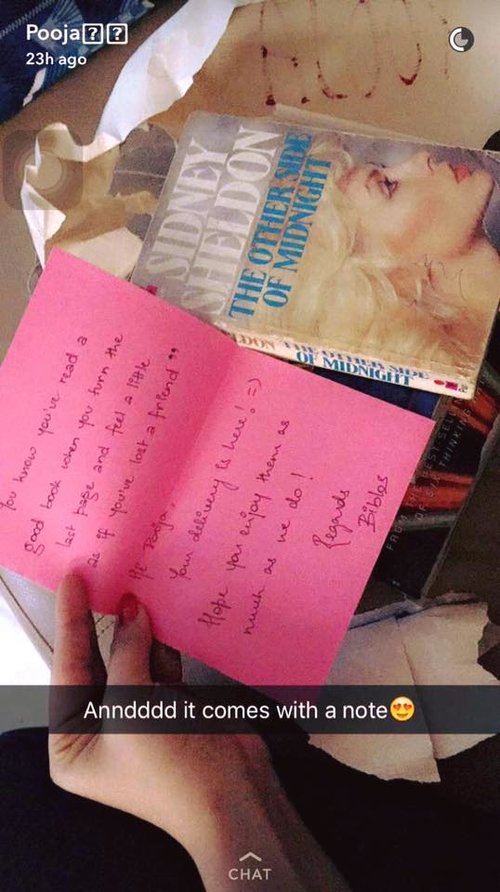 Pooja
23h ago
SIDNEY
SHELDON
THE OTHER SIDE
OF MIDNIGHT
THE OTHER SIDE
OF MIDNIGHT
You know you've read a
good book when you turn the
last page and feel a little
as if you've lost a friend"
Pooja,
Your delivery is here! =)
Hope you enjoy them as
much as we do!
Regards
Bibles
OF BIG THINKING
Anndddd it comes with a note😍
CHAT